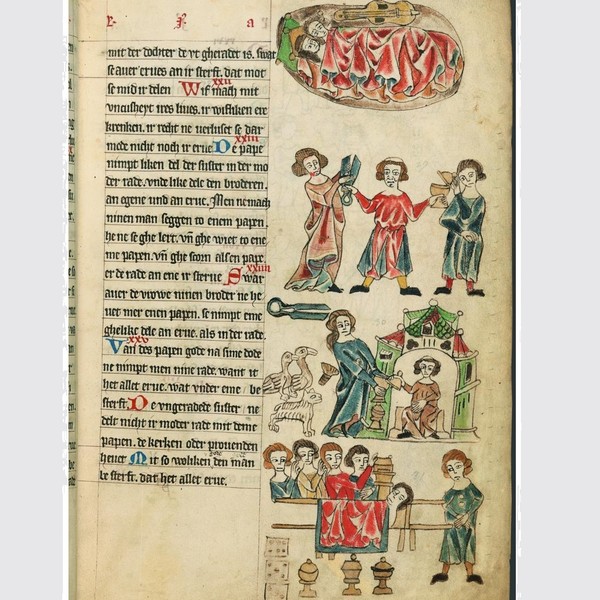 mit der dochter de vt gheradet is. swat
se auer erues an ir sterft. dat mot
xxii
se mid ir delen Wif mach mit
vncuscheyt ires liues. ir wifliken ere
krenken. ir recht ne verluset se dar
xxiii
mede nicht noch ir erue De pape
nimpt liken del der suster in der mo
der rade. vnde like dele den broderen.
an egene und an erue. Men ne mach
ninen man seggen to enem papen.
he ne se ghe lert. vn̄ ghe wiet to ene
me papen. vn̄ ghe scorn alsen pape.
xxiiii
er de rade an ene ir sterue Swar
auer de vrowe ninen broder ne he
uet mer enen papen. se nimpt eme
ghelike dele an erue. als in der rade.
xxv
Van des papen gode na sime dode
ne nimpt men nine rade. want it
het allet erue. wat vnder eme be
sterft. De vngeradede suster ne
delt nicht ir moder rade mit deme
papen. de kerken oder prouenden
heuet Mit so woliken den man
be sterft. dat het allet erue.